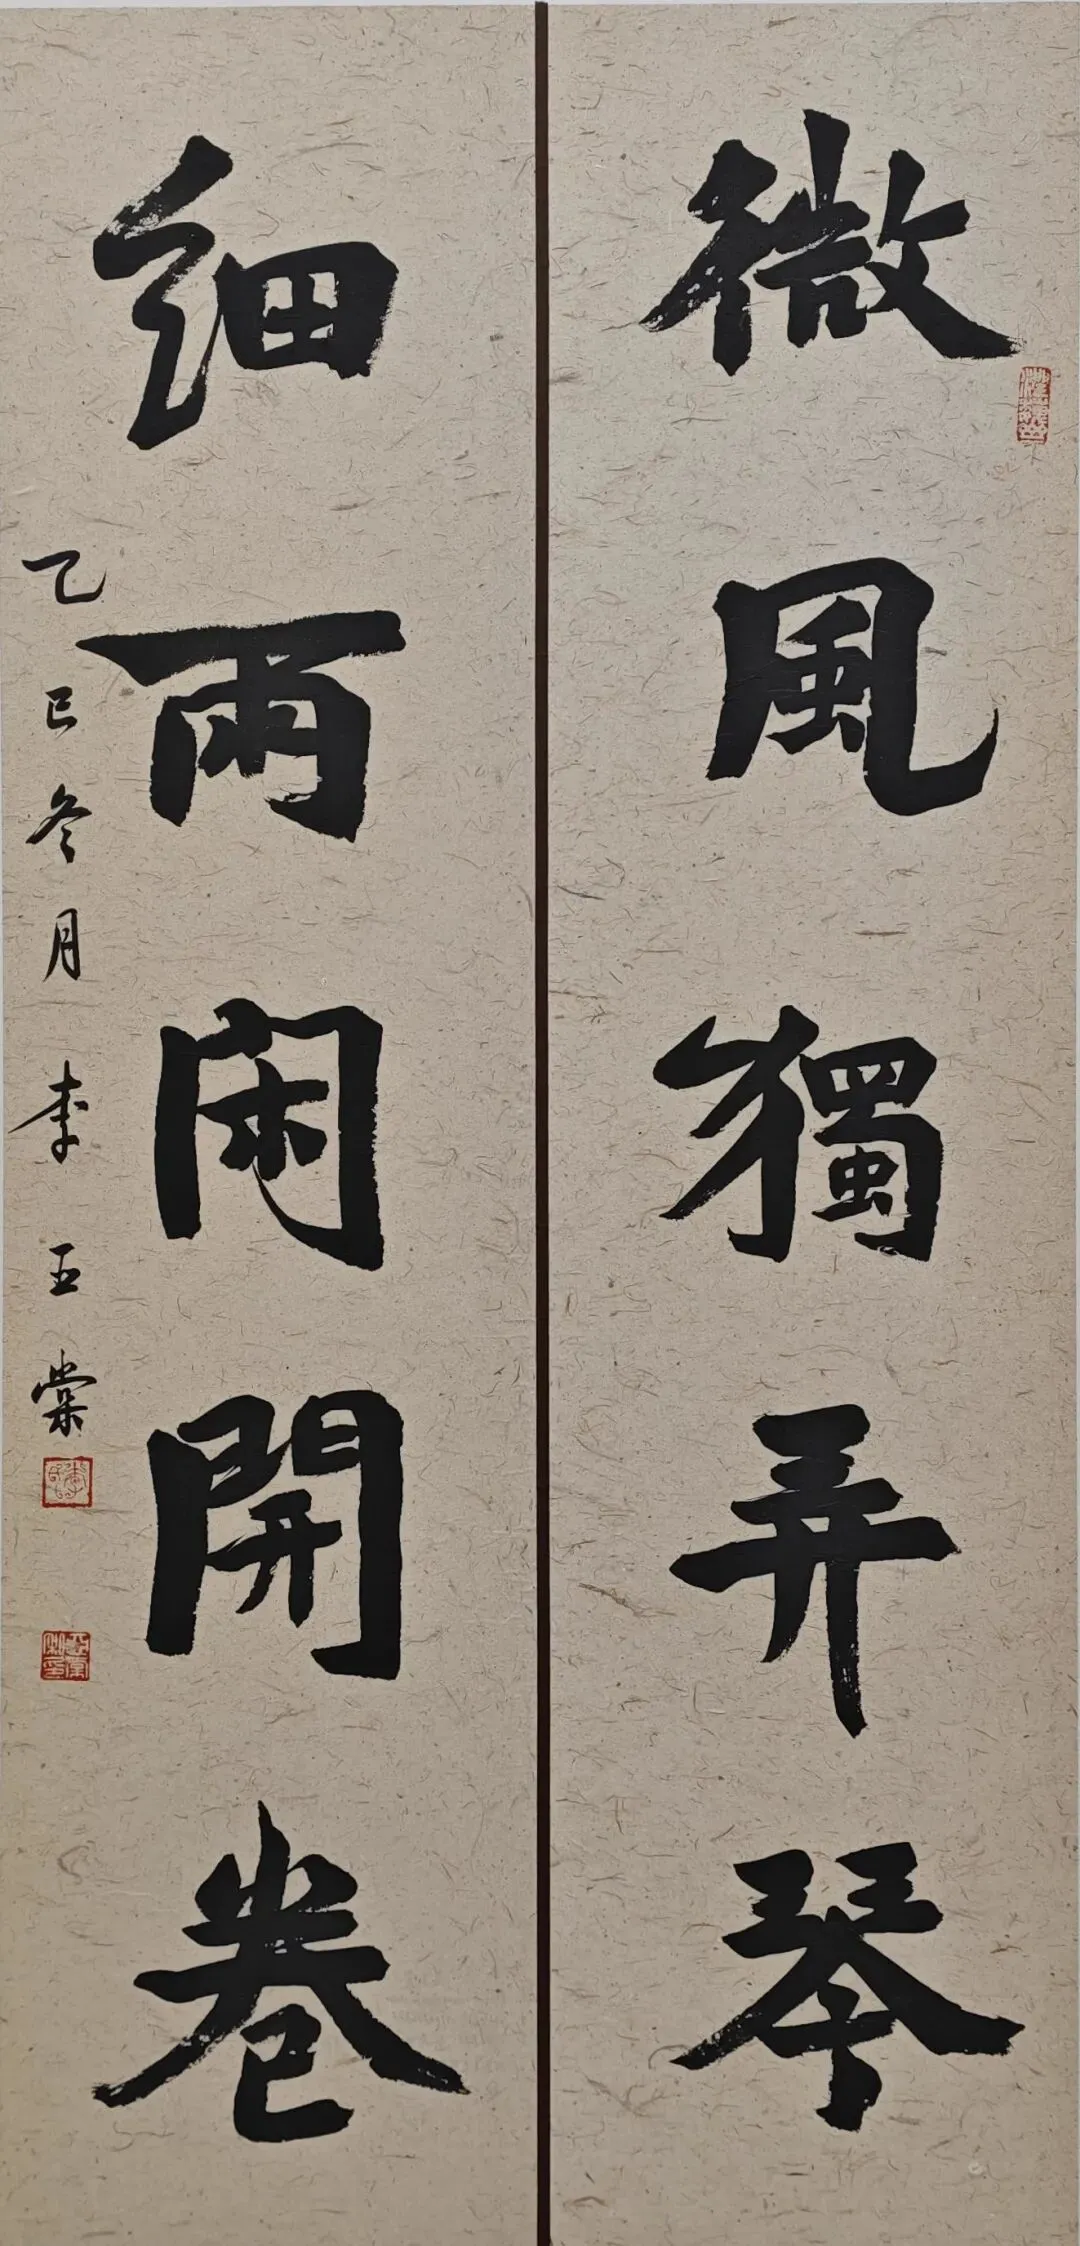 微風獨弄琴
细雨闲開卷
乙巳冬月 李玉棠